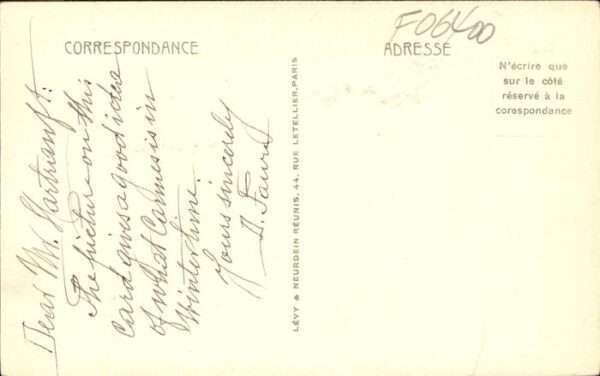 F06400
CORRESPONDANCE
ADRESSE
N'écrire que
sur le côté
réservé à la
corespondance
Dear Mr. Hartranft:
The picture on this
card gives a good idea
of what Cannes is in
Wintertime.
Yours sincerely
D. Faure
LÉVY & NEURDEIN RÉUNIS, 44, RUE LETELLIER, PARIS